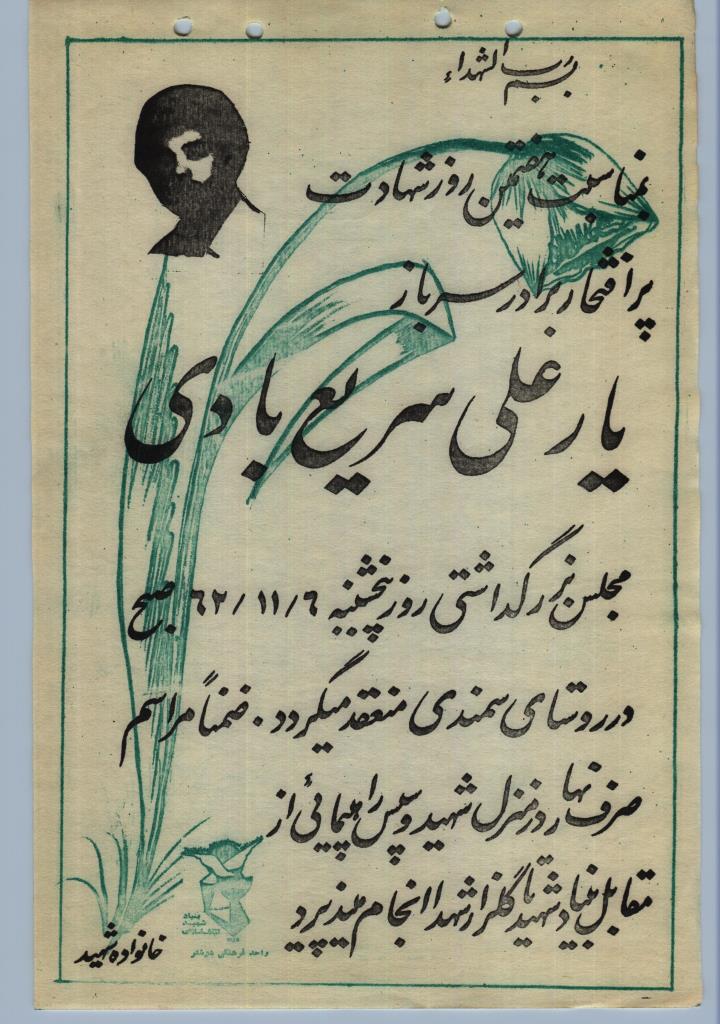 بسم رب الشهداء
بمناسبت هفتمین روز شهادت
پرافتخار برادر سرباز
یار علی سریع بادی
مجلس بزرگداشتی روز پنجشنبه ۶۲/۱۱/۶ صبح
در روستای سمندی منعقد میگردد. ضمناً مراسم
صرف نهار در منزل شهید و سپس راهپیمائی از
مقابل بنیاد شهید تا گلزار شهدا انجام میپذیرد
خانواده شهید
بنیاد
شهید
انقلاب اسلامی
واحد فرهنگی